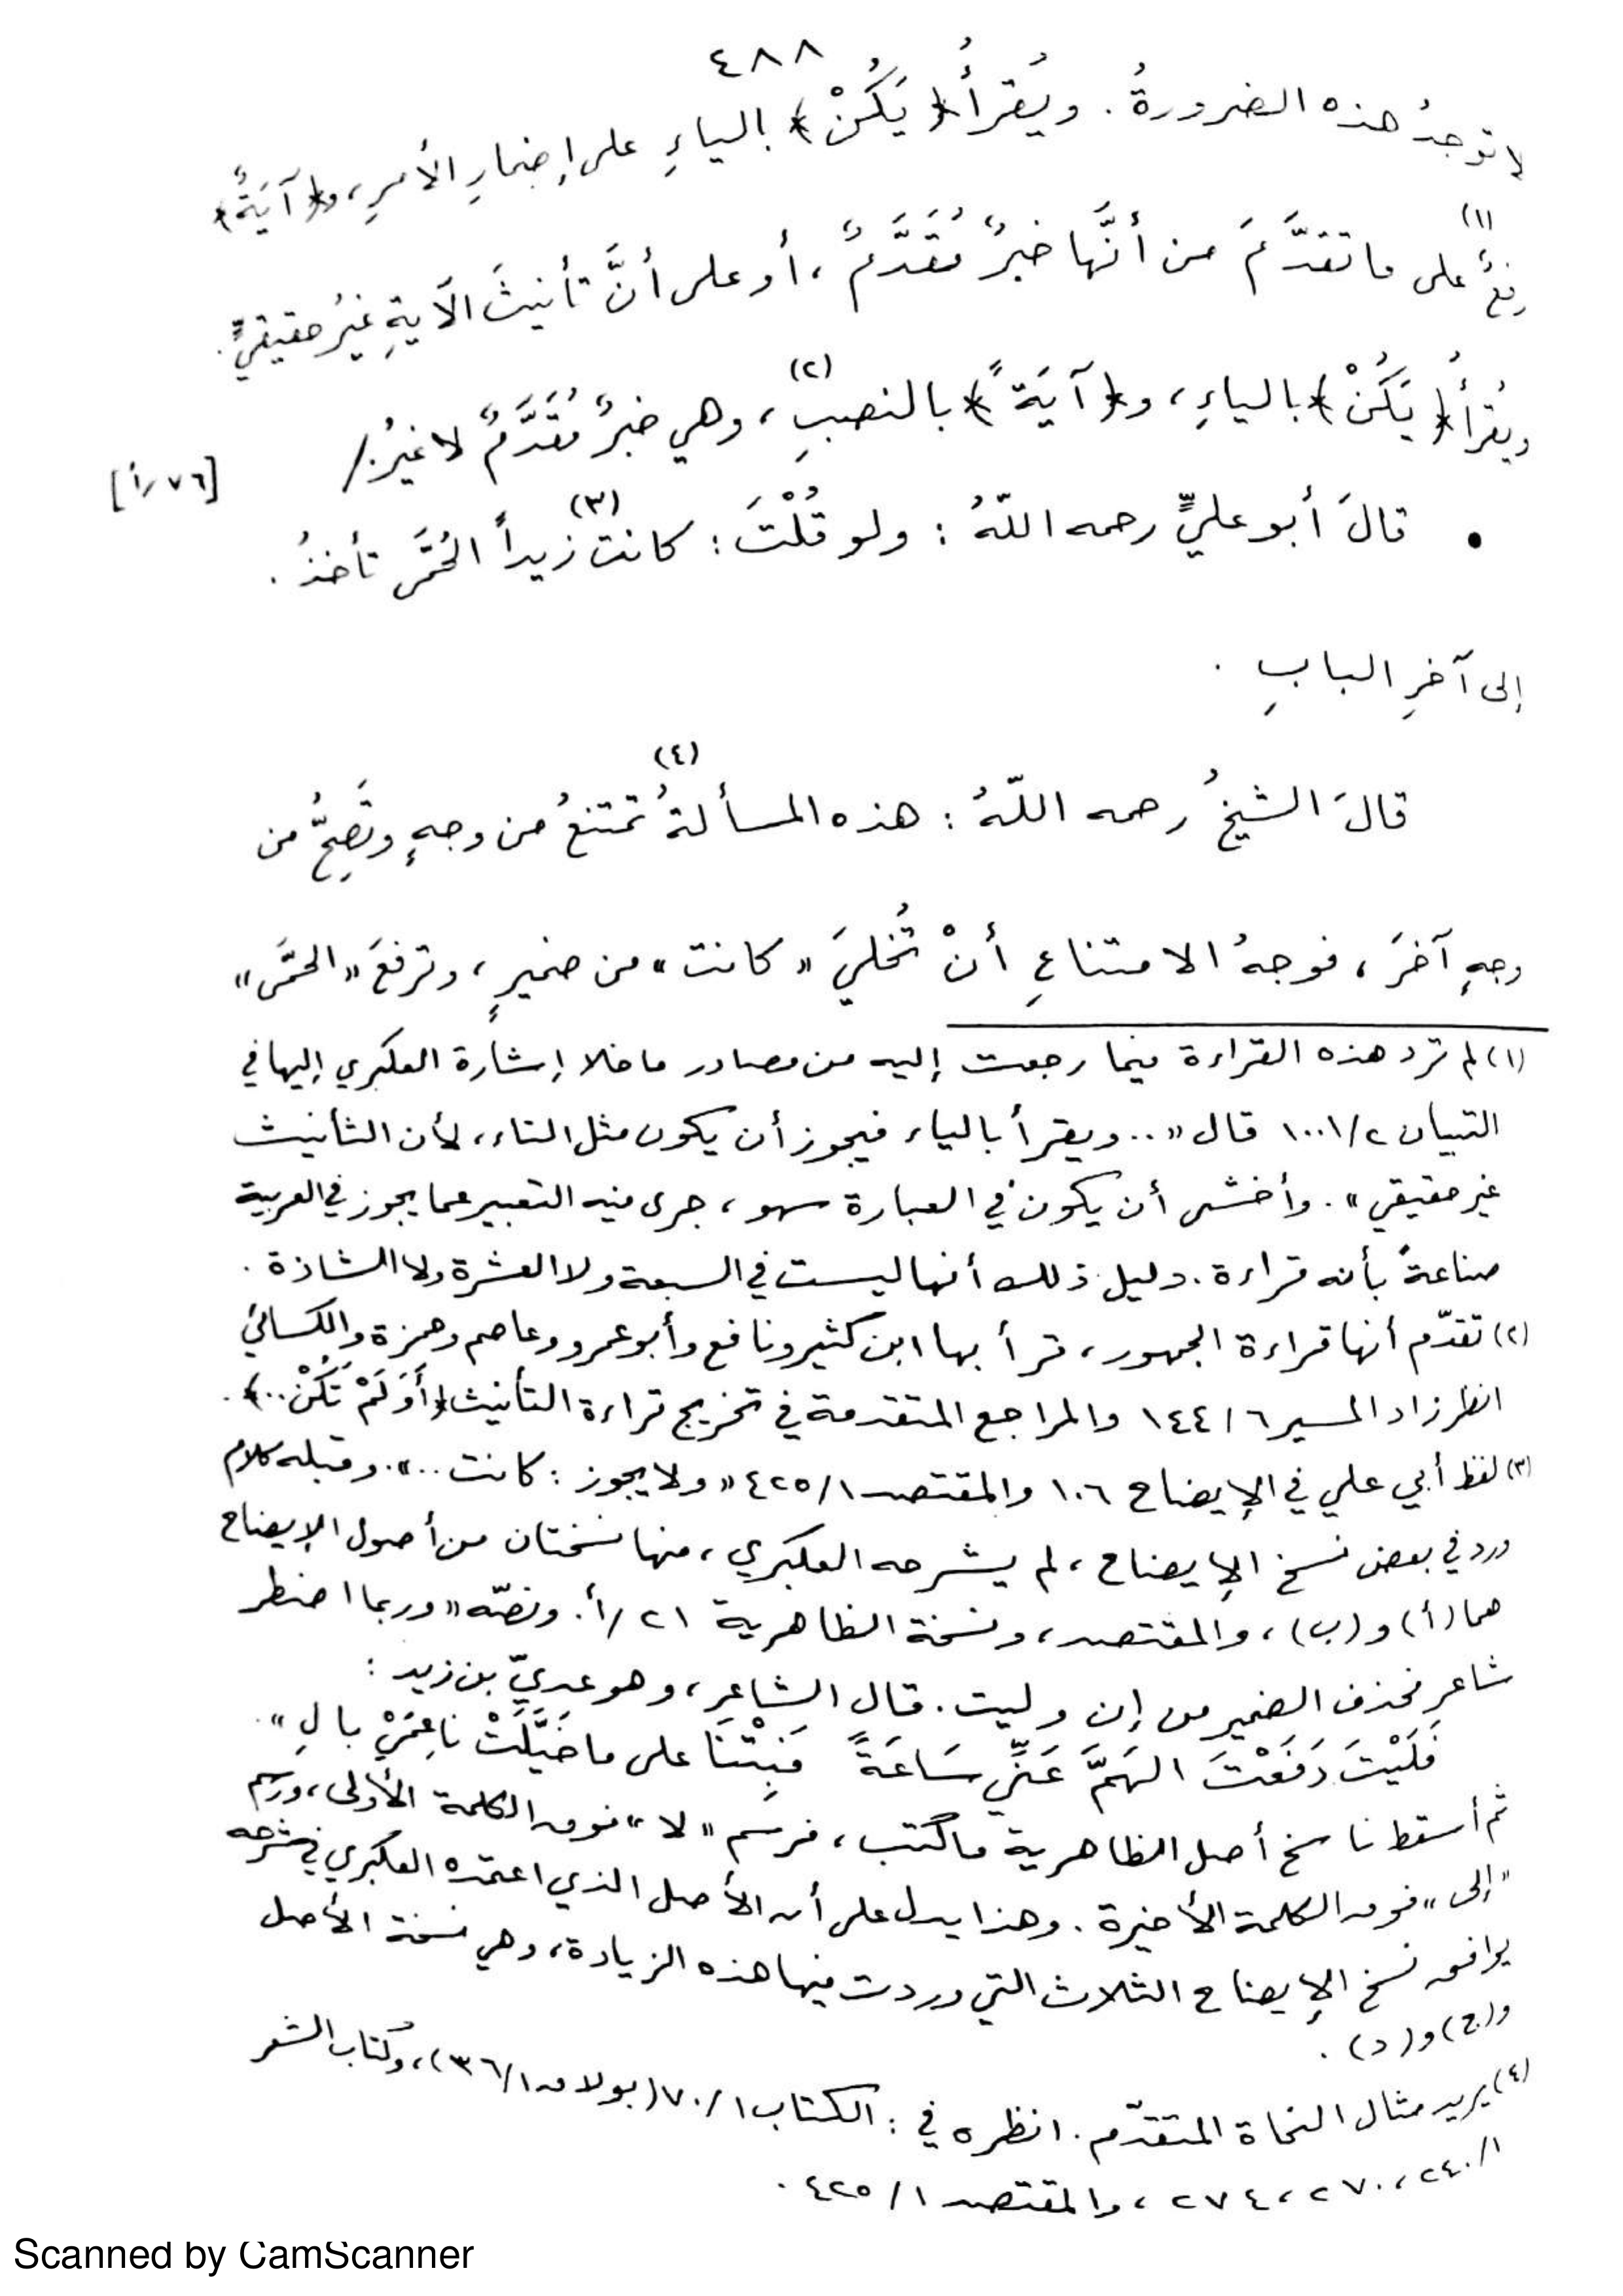 ٤٨٨
لا توجدُ هذه الضرورةُ . ويُقرأُ ﴿ يَكُنْ ﴾ بالياءِ على إضمارِ الأمرِ ، و﴿ آيَةٌ ﴾
رفعٌ (١) على ما تقدَّمَ من أنَّها خبرٌ مُقَدَّمٌ ، أو على أنَّ تأنيثَ الآيةِ غيرُ حقيقيٍّ .
ويُقرأُ ﴿ يَكُنْ ﴾ بالياءِ ، و﴿ آيَةً ﴾ بالنصبِ (٢) ، وهي خبرٌ مُقَدَّمٌ لا غيرُ . /
[٧٦/أ]
• قالَ أبو عليٍّ رحمه اللّهُ : ولو قُلْتَ : كانت (٣) زيداً الحُمَّى تأخذُ .
إلى آخرِ البابِ .
قالَ الشيخُ رحمه اللّهُ : هذه المسألةُ (٤) تمتنعُ من وجهٍ وتَصِحُّ من
وجهٍ آخرَ ، فوجهُ الامتناعِ أنْ تُخليَ « كانت » من ضميرٍ ، وترفعَ « الحمَّى »
(١) لم ترد هذه القراءة فيما رجعت إليه من مصادر ما خلا إشارة العكبري إليها في
التبيان ١٠٠١/٢ قال « .. ويقرأ بالياء فيجوز أن يكون مثل التاء ، لأن التأنيث
غير حقيقي » . وأخشى أن يكون في العبارة سهو ، جرى فيه التعبير عما يجوز في العربية
صناعةً بأنه قراءة . دليل ذلك أنها ليست في السبعة ولا العشرة ولا الشاذة .
(٢) تقدّم أنها قراءة الجمهور ، قرأ بها ابن كثير ونافع وأبو عمرو وعاصم وحمزة والكسائي
انظر زاد المسير ١٤٤/٦ والمراجع المتقدمة في تخريج قراءة التأنيث ﴿ أَوَلَمْ تَكُنْ .. ﴾ .
(٣) لفظ أبي علي في الإيضاح ١٠٦ والمقتصد ٤٢٥/١ « ولا يجوز : كانت .. » . وقبله كلام
ورد في بعض نسخ الإيضاح ، لم يشرحه العكبري ، منها نسختان من أصول الإيضاح
هما (أ) و (ب) ، والمقتصد ، ونسخة الظاهرية ٢١/أ . ونصّه « وربما اضطر
شاعر فحذف الضمير من إن وليت . قال الشاعر ، وهو عديّ بن زيد :
فَلَيْتَ دَفَعْتَ الهَمَّ عَنِّي سَاعَةً فَبِتْنَا على ما خَيَّلَتْ ناعِمَيْ بالِ » .
ثم أسقط ناسخ أصل الظاهرية ما كتب ، فرسم « لا » فوق الكلمة الأولى ، ورسم
« إلى » فوق الكلمة الأخيرة . وهذا يدل على أن الأصل الذي اعتمده العكبري في شرحه
يوافق نسخ الإيضاح الثلاث التي وردت فيها هذه الزيادة ، وهي نسخة الأصل
و(ج) و (د) .
(٤) يريد مثال النحاة المتقدّم . انظره في : الكتاب ٧٠/١ (بولاق ٣٦/١) ، وكتاب الشعر
٢٤٠/١ ، ٢٧٠ ، ٢٧٤ ، والمقتصد ٤٢٥/١ .
Scanned by CamScanner